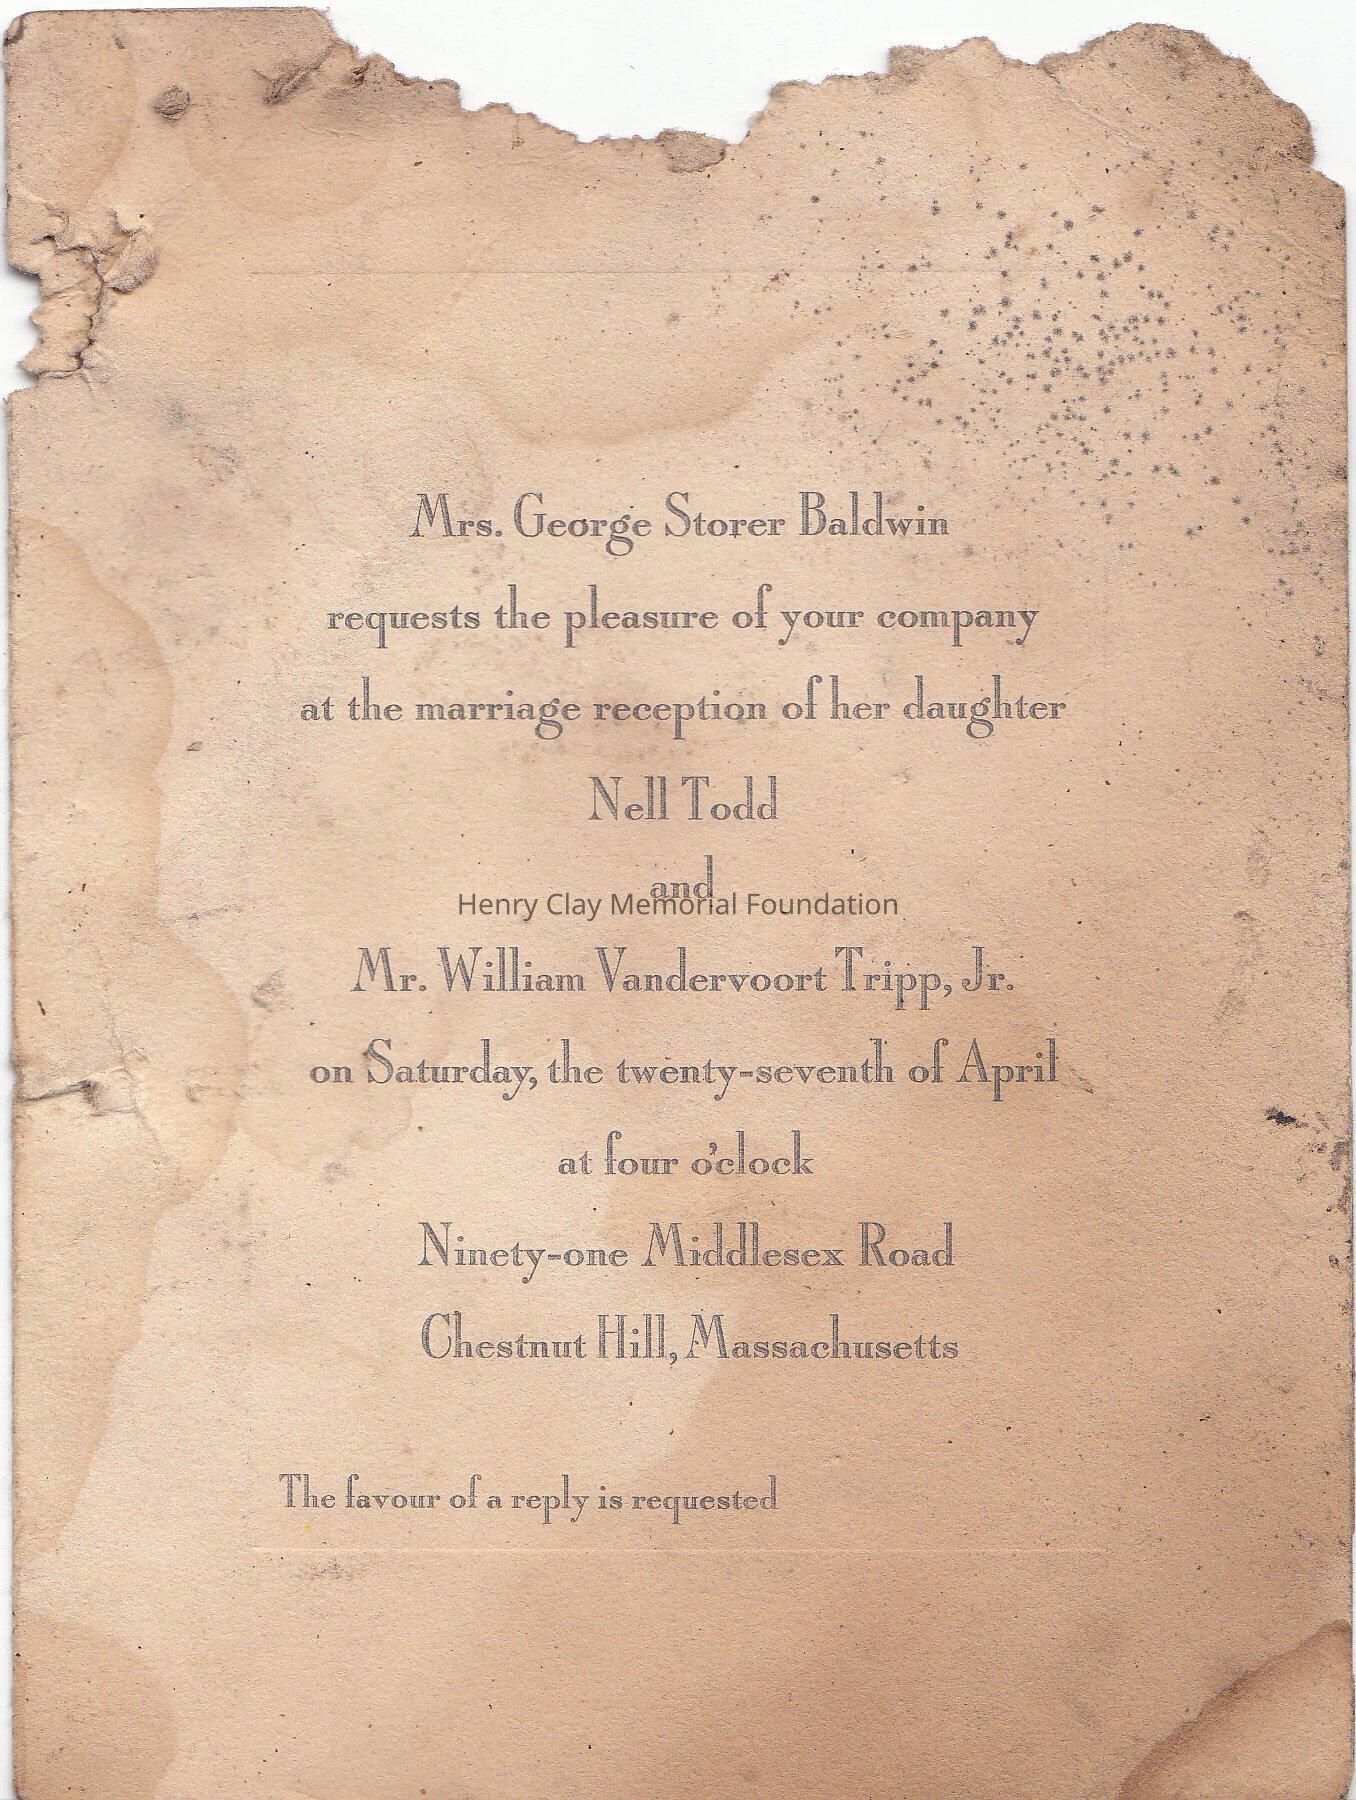 Mrs. George Storer Baldwin
requests the pleasure of your company
at the marriage reception of her daughter
Nell Todd
and
Henry Clay Memorial Foundation
Mr. William Vandervoort Tripp, Jr.
on Saturday, the twenty-seventh of April
at four o'clock
Ninety-one Middlesex Road
Chestnut Hill, Massachusetts
The favour of a reply is requested